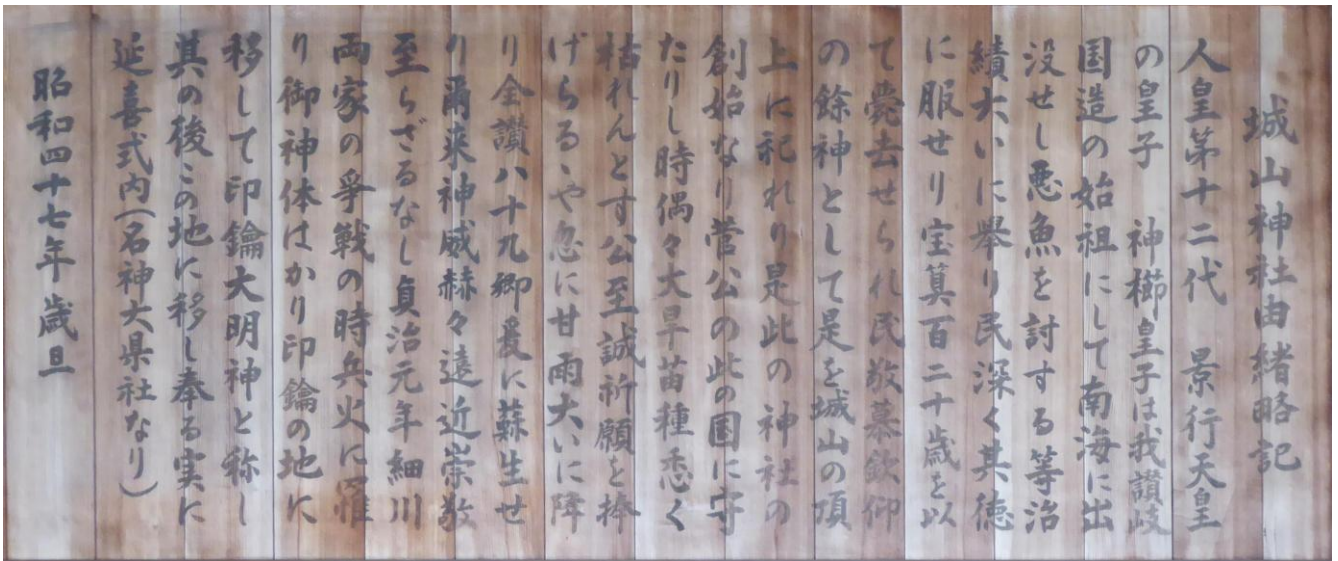 城山神社由緒略記
人皇第十二代 景行天皇
の皇子 神櫛皇子は我讃岐
国造の始祖にして南海に出
没せし悪魚を討する等治
績大いに挙り民深く其徳
に服せり宝算百二十歳を以
て薨去せられ民敬慕欽仰
の餘神として是を城山の頂
上に祀れり是此の神社の
創始なり菅公の此の国に守
たりし時偶々大旱苗種悉く
枯れんとす公至誠祈願を捧
げらるゝや忽に甘雨大いに降
り全讃八十九郷爰に蘇生せ
り爾来神威赫々遠近崇敬
至らざるなし貞治元年細川
両家の爭戦の時兵火に罹
り御神体はかり印鑰の地に
移して印鑰大明神と称し
其の後この地に移し奉る実に
延喜式内(名神大県社なり)
昭和四十七年歳旦